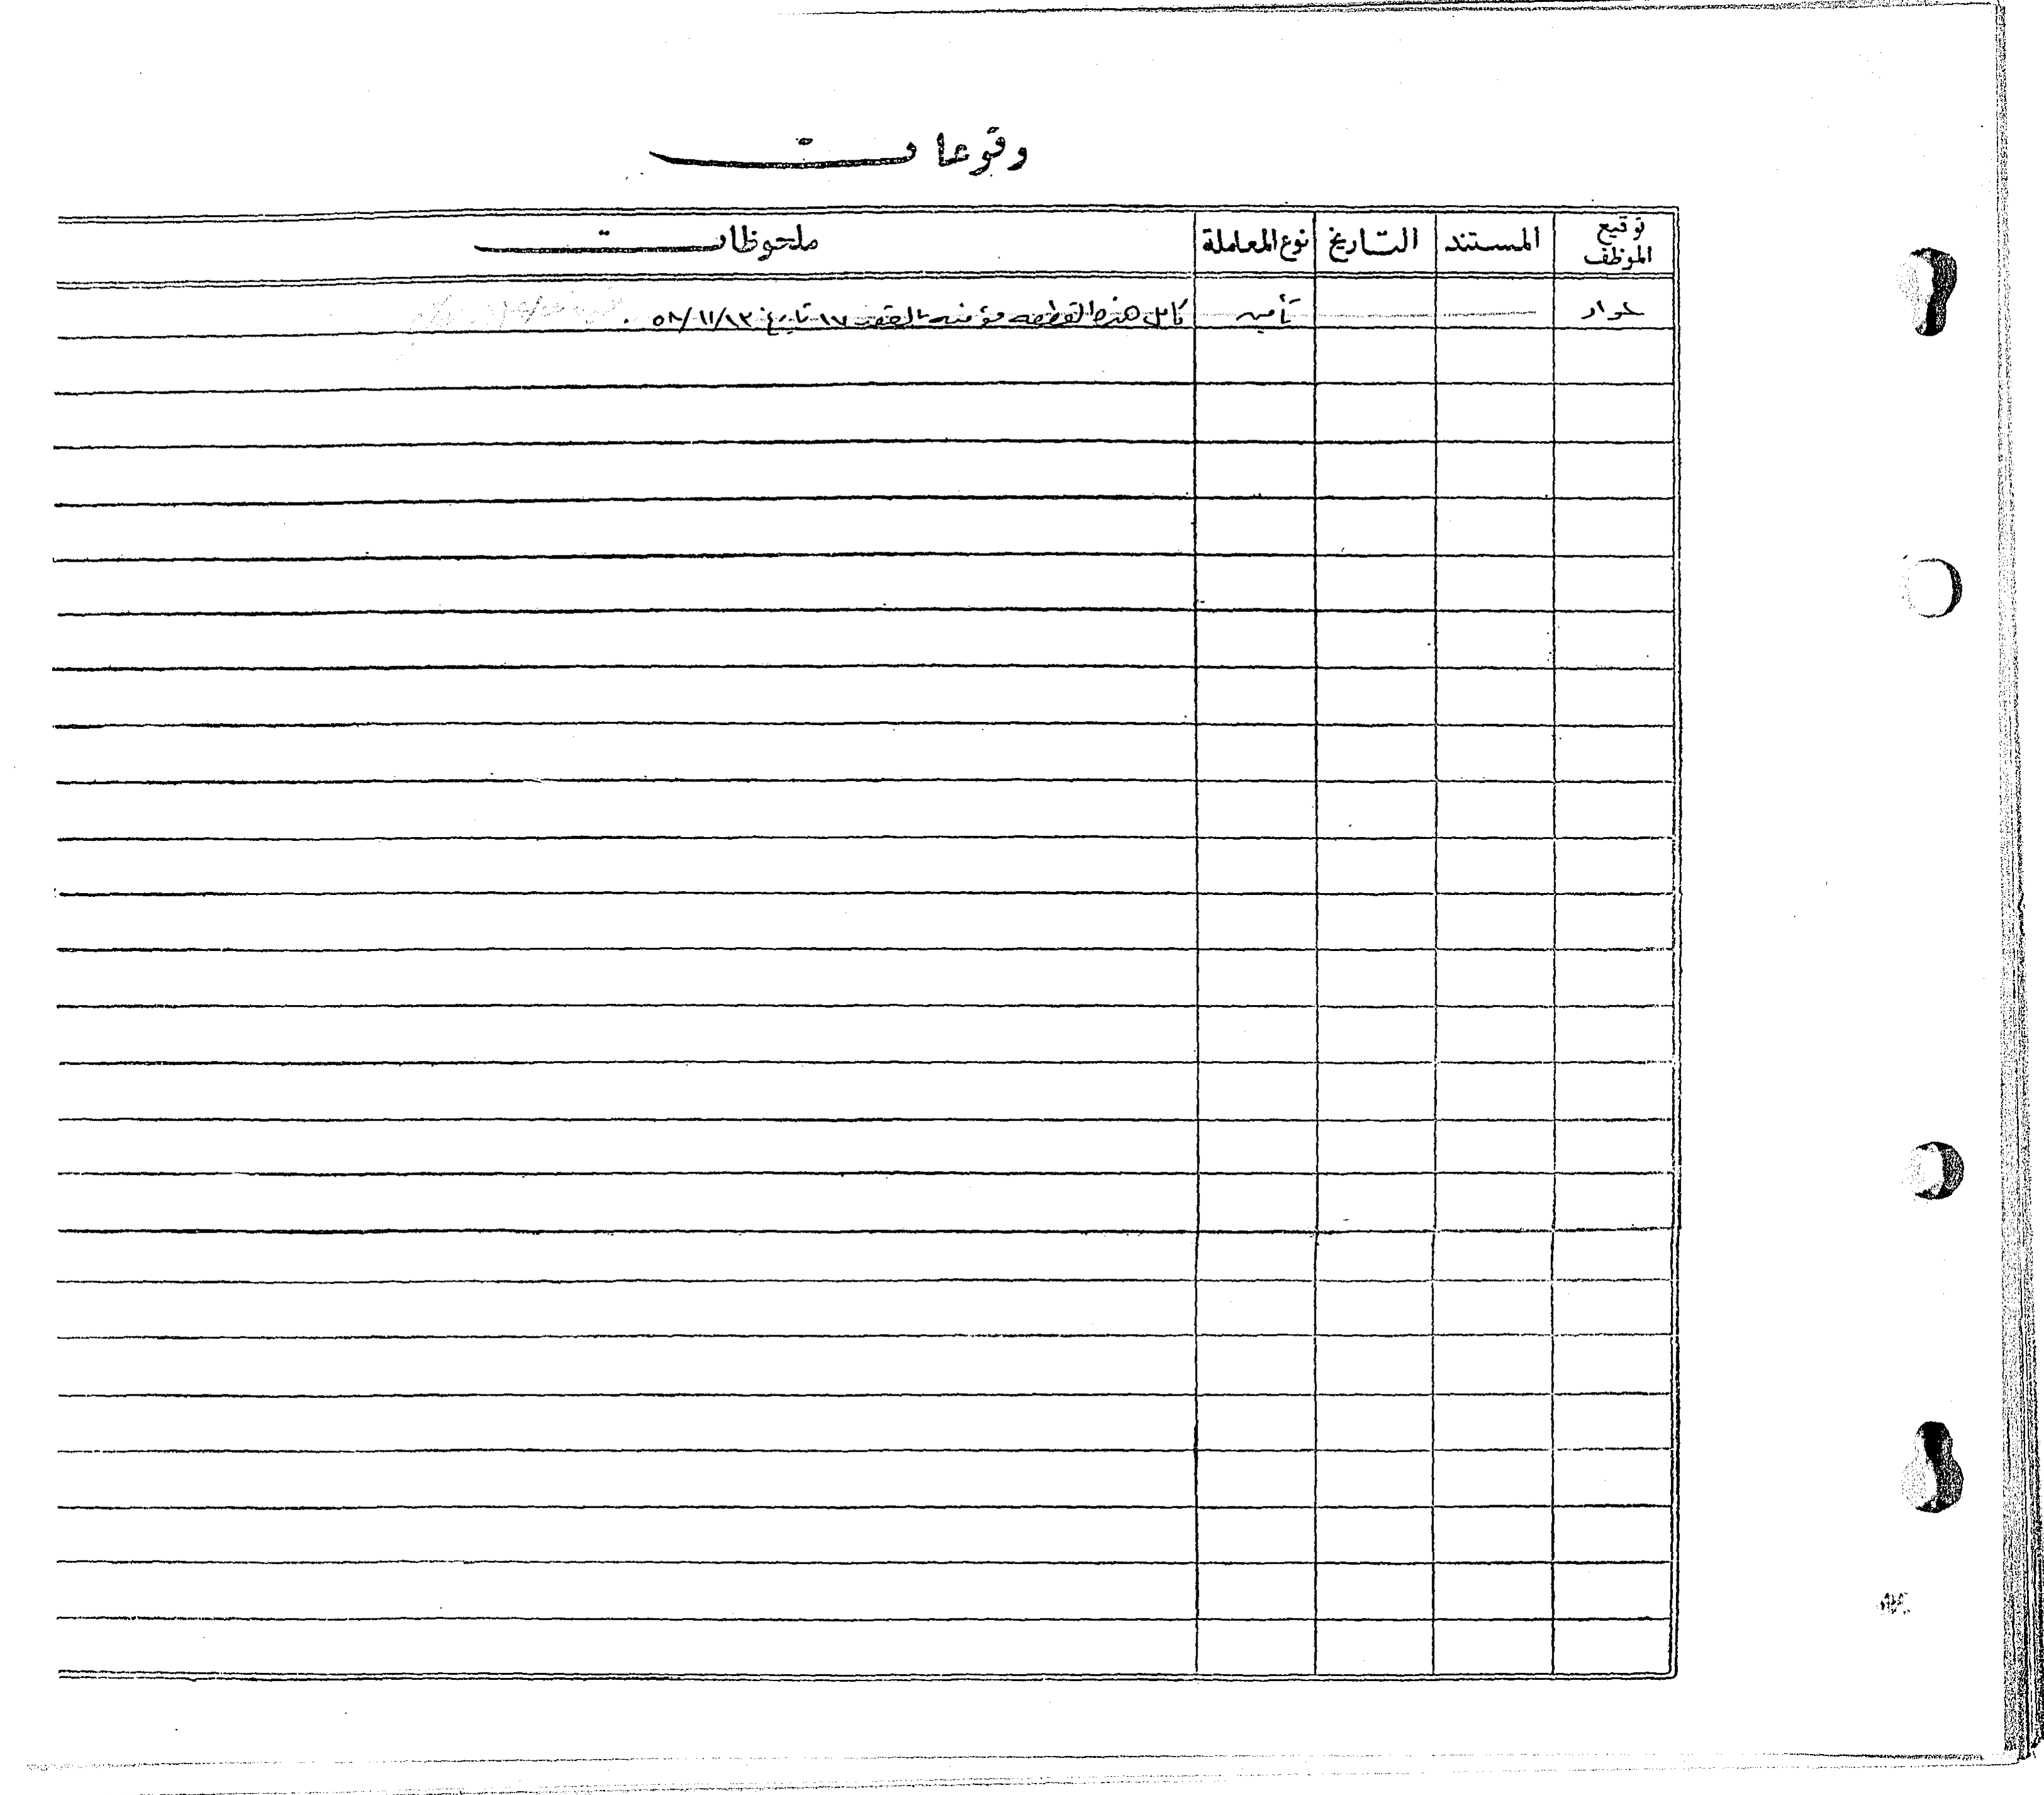 وقوعات
توقيع الموظف المستند التاريخ نوع المعاملة ملحوظات
تأمين كامل هذه القطعه مؤمنه بالعقد ١٧ تاريخ ٥٨/١١/١٣ .